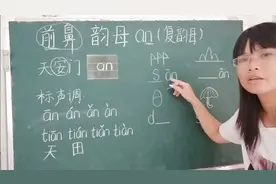 前鼻韵母 an (复韵母)
天安门 an
S ān __ ān
标声调
ān án ǎn àn
d__
tiān tián tiǎn tiàn
天 田